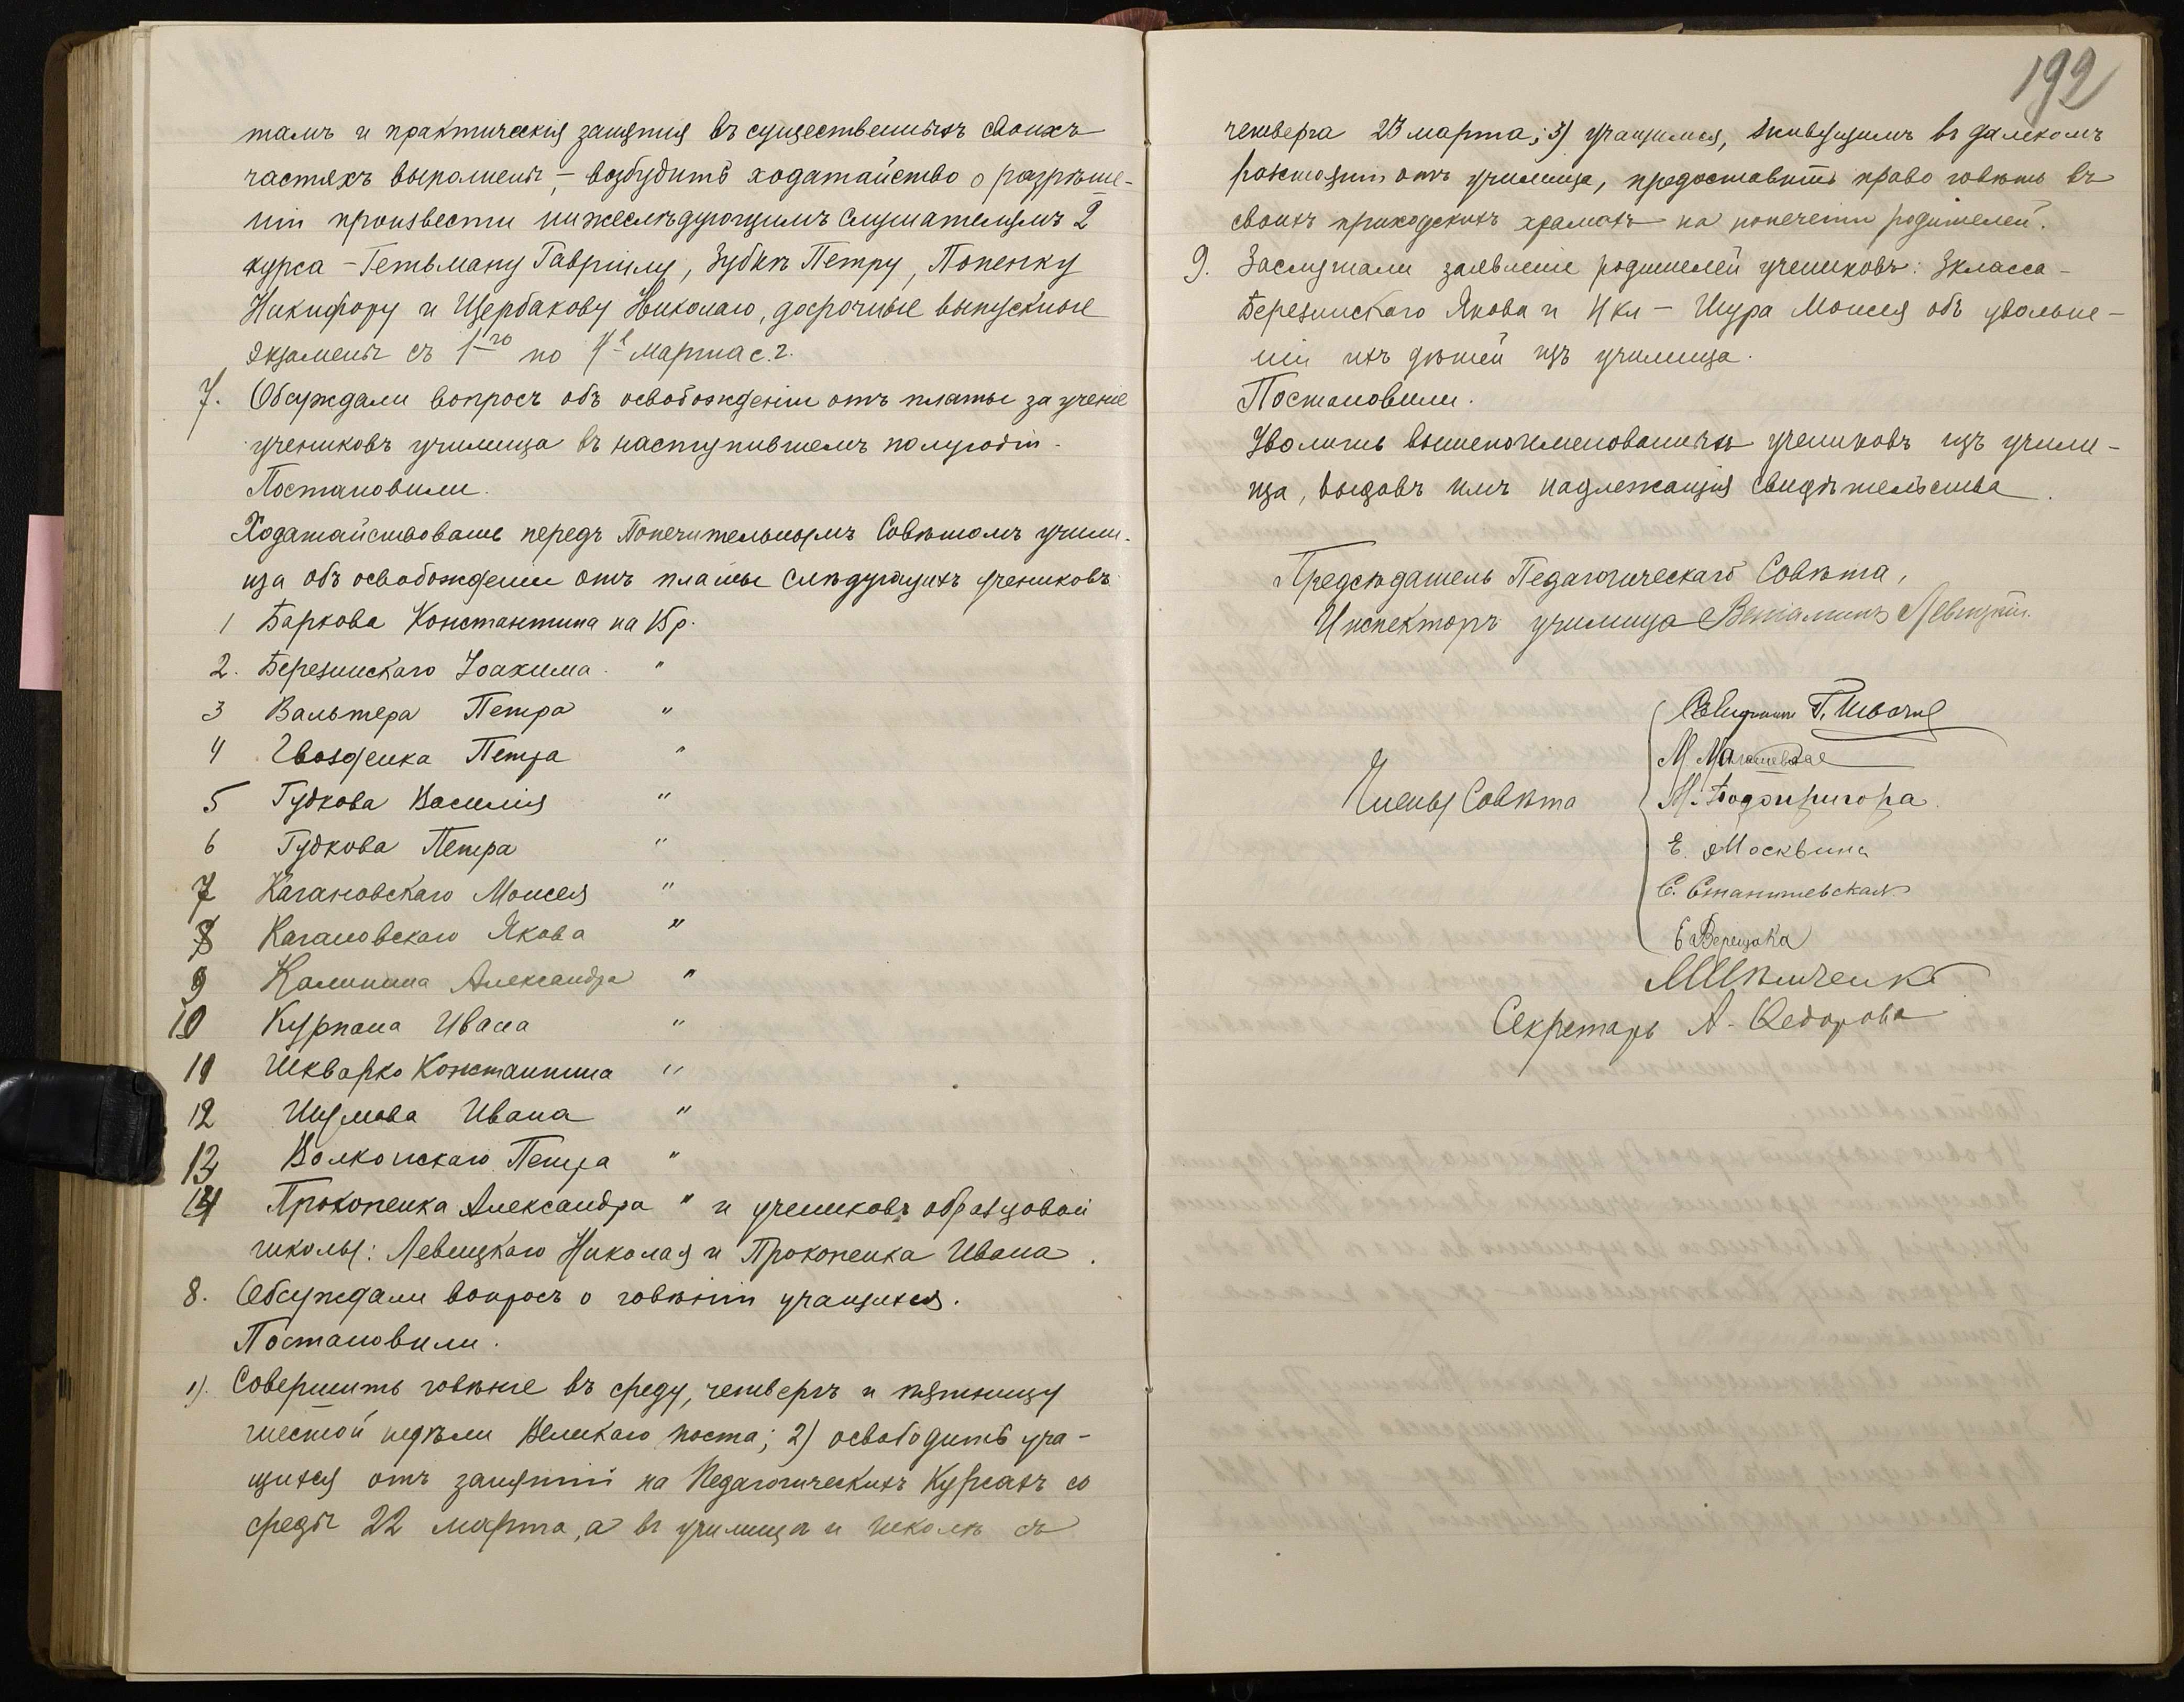 тамъ и практическія занятія въ существенныхъ своихъ
частяхъ выполнены, – возбудить ходатайство о разрѣше-
ніи произвести нижеслѣдующимъ слушателямъ 2
курса – Гетьману Гавріилу, Зубкѣ Петру, Попенку
Никифору и Щербакову Николаю, досрочные выпускные
экзамены съ 1го по 4е марта с. г.
7. Обсуждали вопросъ объ освобожденіи отъ платы за ученіе
учениковъ училища въ наступившемъ полугодіи.
Постановили.
Ходатайствовать передъ Попечительнымъ Совѣтомъ учили-
ща объ освобожденіи отъ платы слѣдующихъ учениковъ
1 Баркова Константина на 15 р.
2. Березинскаго Іоахима "
3 Вальтера Петра "
4 Гвозденка Петра "
5 Гудкова Василія "
6 Гудкова Петра "
7 Кагановскаго Моисея "
8 Кагановскаго Якова "
9 Калинина Александра "
10 Курпана Ивана "
11 Шкварко Константина "
12 Шумова Ивана "
13 Волконскаго Петра "
14 Прокопенка Александра " и учениковъ образцовой
школы: Левицкаго Николая и Прокопенка Ивана.
8. Обсуждали вопросъ о говѣніи учащихся.
Постановили.
1). Совершить говѣніе въ среду, четвергъ и пятницу
шестой недѣли Великаго поста; 2) освободить уча-
щихся отъ занятій на Педагогическихъ Курсахъ со
среды 22 марта, а въ училищѣ и школѣ съ
192
четверга 23 марта; 3) учащимся, живущимъ въ далекомъ
разстояніи отъ училища, предоставить право говѣть въ
своихъ приходскихъ храмахъ на попеченіи родителей.
9. Заслушали заявленіе родителей учениковъ: 3 класса –
Березинскаго Якова и 4 кл – Шура Моисея объ увольне-
ніи ихъ дѣтей изъ училища.
Постановили.
Уволить вышепоименованныхъ учениковъ изъ учили-
ща, выдавъ имъ надлежащія свидѣтельства.
Предсѣдатель Педагогическаго Совѣта,
Инспекторъ училища Веніаминъ Левицкій.
Священникъ Г.
М.
Члены Совѣта
М. Подопригора.
Е. Москвина
С. Станишевская
Е Верещака
Секретарь А. Федорова